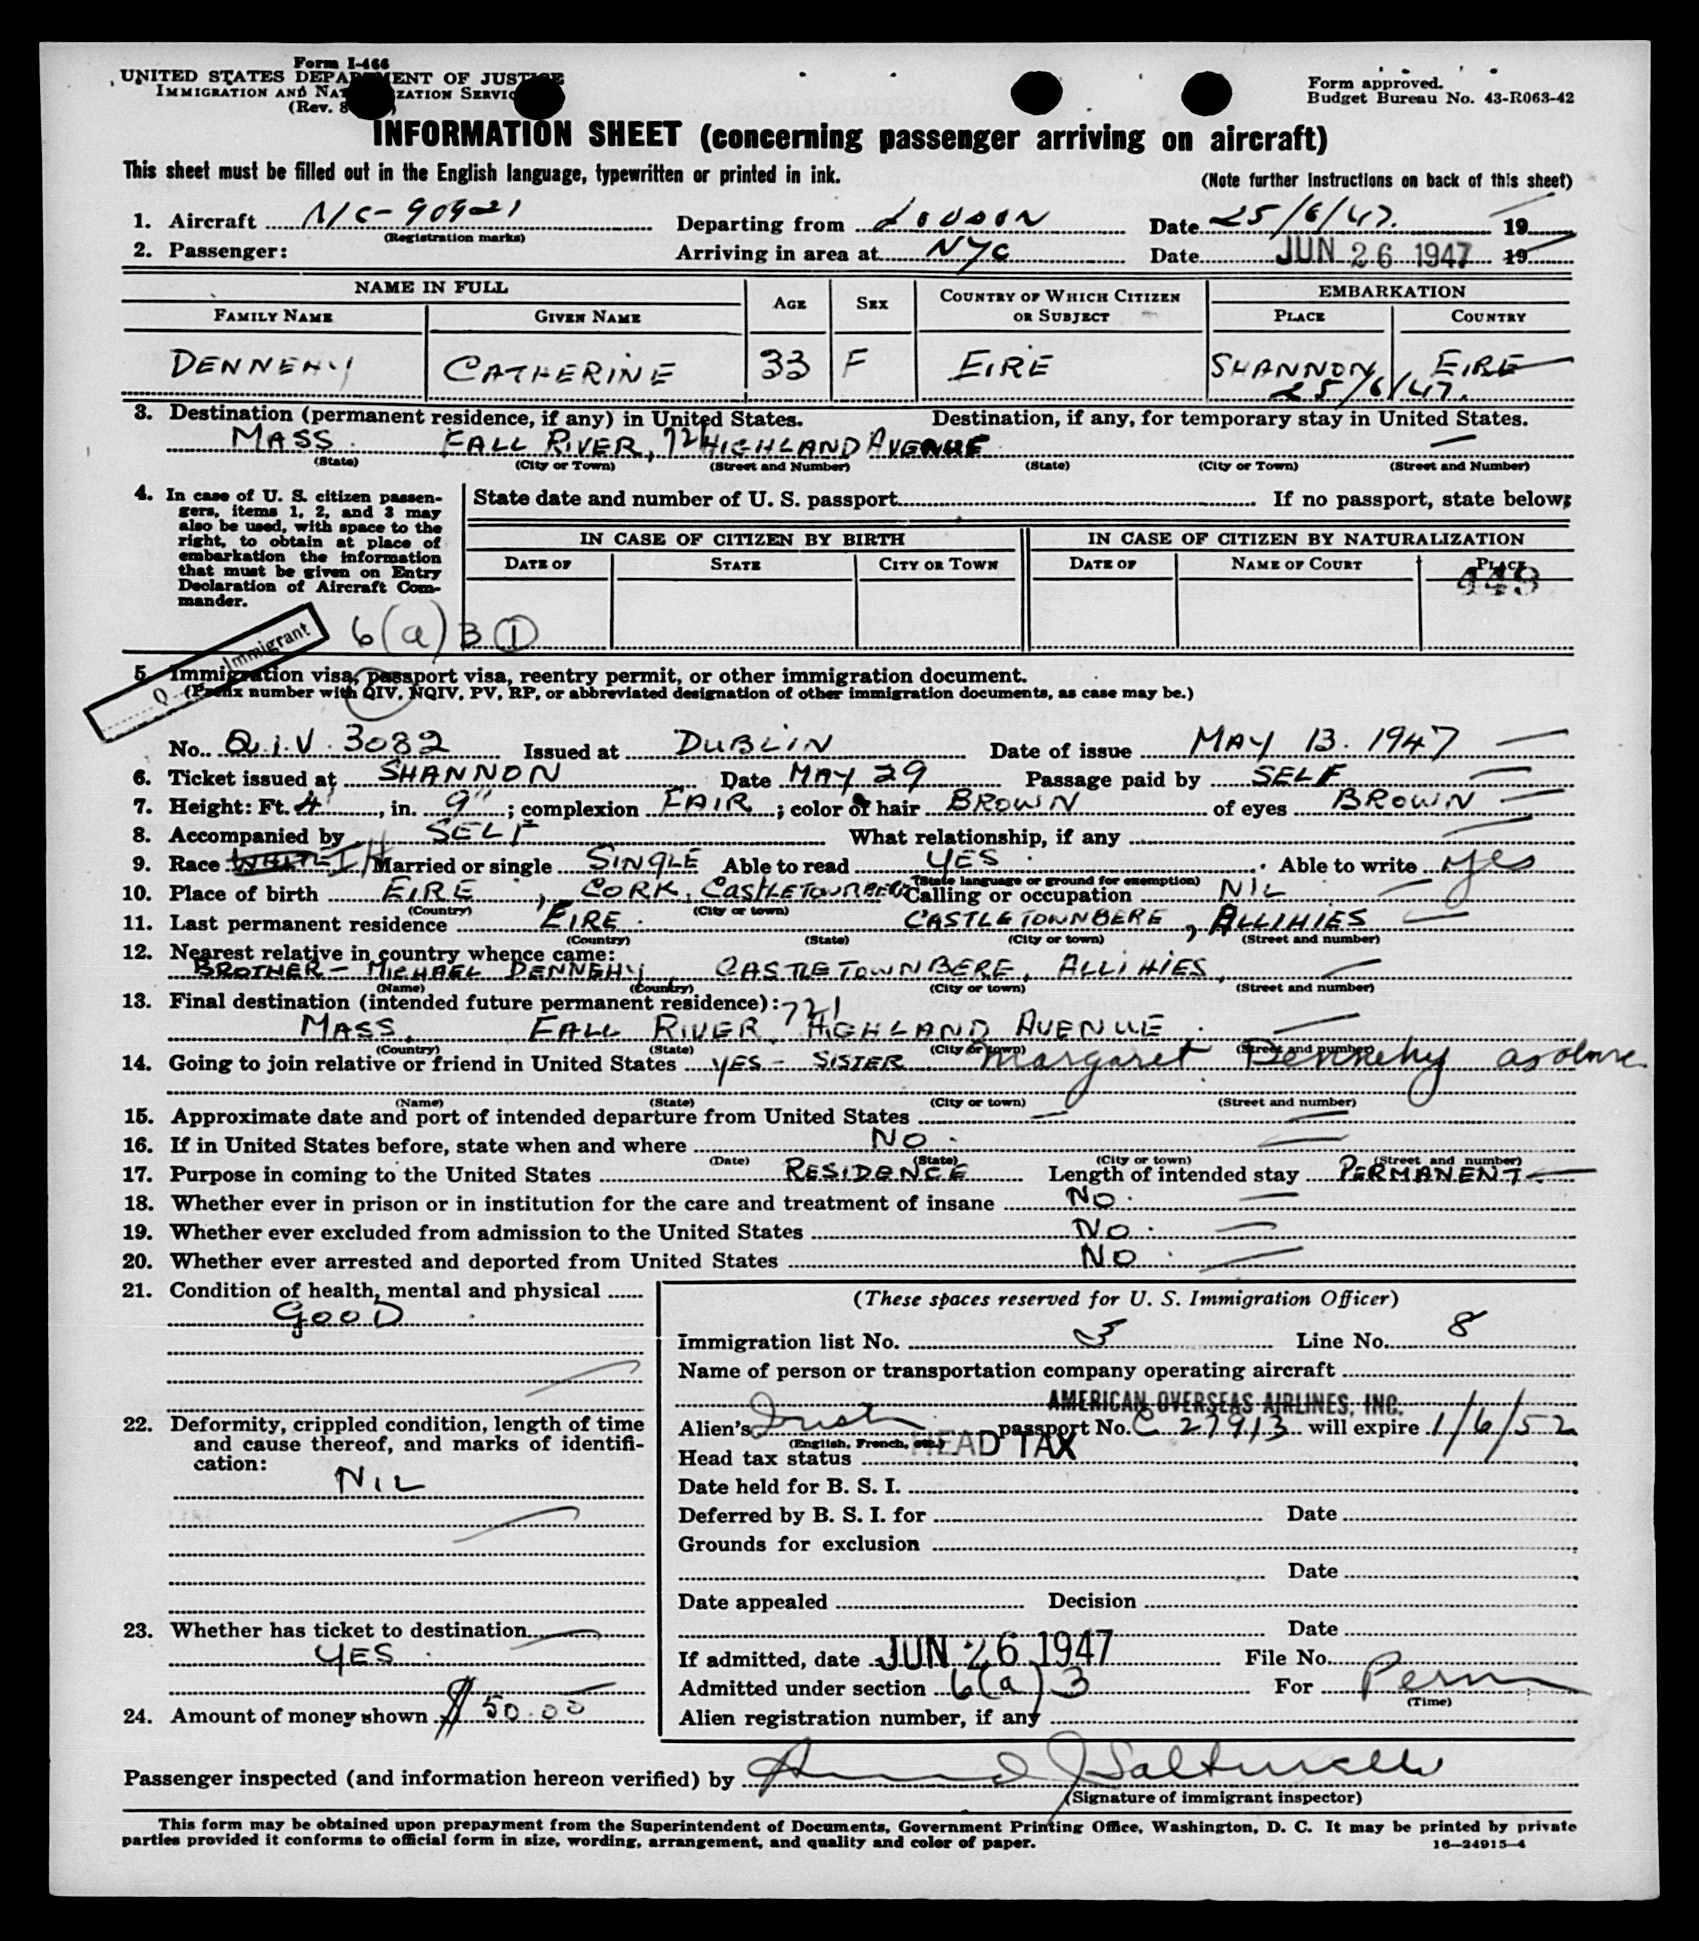 Form I-466
UNITED STATES DEPARTMENT OF JUSTICE
IMMIGRATION AND NATURALIZATION SERVICE
(Rev. 8
Form approved.
Budget Bureau No. 43-R063-42
INFORMATION SHEET (concerning passenger arriving on aircraft)
This sheet must be filled out in the English language, typewritten or printed in ink.
(Note further instructions on back of this sheet)
1. Aircraft N/C-90921 Departing from LONDON Date 25/6/47. 19
(Registration marks)
2. Passenger: Arriving in area at NYC Date JUN 26 1947 19
NAME IN FULL AGE SEX COUNTRY OF WHICH CITIZEN OR SUBJECT EMBARKATION
FAMILY NAME GIVEN NAME PLACE COUNTRY
DENNEHY CATHERINE 33 F EIRE SHANNON EIRE
25/6/47.
3. Destination (permanent residence, if any) in United States. Destination, if any, for temporary stay in United States.
MASS. FALL RIVER, 721 HIGHLAND AVENUE —
(State) (City or Town) (Street and Number) (State) (City or Town) (Street and Number)
4. In case of U. S. citizen passengers, items 1, 2, and 3 may also be used, with space to the right, to obtain at place of embarkation the information that must be given on Entry Declaration of Aircraft Commander.
State date and number of U. S. passport If no passport, state below:
IN CASE OF CITIZEN BY BIRTH IN CASE OF CITIZEN BY NATURALIZATION
DATE OF STATE CITY OR TOWN DATE OF NAME OF COURT PLACE
449
6(a)3 1
Q Immigrant
5. Immigration visa, passport visa, reentry permit, or other immigration document.
(Prefix number with QIV, NQIV, PV, RP, or abbreviated designation of other immigration documents, as case may be.)
No. Q.I.V. 3082 Issued at DUBLIN Date of issue MAY 13. 1947 —
6. Ticket issued at SHANNON Date MAY 29 Passage paid by SELF —
7. Height: Ft. 4', in. 9"; complexion FAIR; color of hair BROWN of eyes BROWN —
8. Accompanied by SELF What relationship, if any —
9. Race Married or single SINGLE Able to read YES. Able to write yes
(State language or ground for exemption)
10. Place of birth EIRE, CORK, CASTLETOWNBERE Calling or occupation NIL —
(Country) (City or town)
11. Last permanent residence EIRE. CASTLETOWNBERE, ALLIHIES —
(Country) (State) (City or town) (Street and number)
12. Nearest relative in country whence came:
BROTHER - MICHAEL DENNEHY CASTLETOWNBERE, ALLIHIES, —
(Name) (Country) (City or town) (Street and number)
13. Final destination (intended future permanent residence):
MASS, FALL RIVER, 721 HIGHLAND AVENUE. —
(Country) (State) (City or town) (Street and number)
14. Going to join relative or friend in United States YES - SISTER Margaret Dennehy as above
(Name) (State) (City or town) (Street and number)
15. Approximate date and port of intended departure from United States — —
16. If in United States before, state when and where NO. —
(Date) (State) (City or town) (Street and number)
17. Purpose in coming to the United States RESIDENCE Length of intended stay PERMANENT. —
18. Whether ever in prison or in institution for the care and treatment of insane NO. —
19. Whether ever excluded from admission to the United States NO. —
20. Whether ever arrested and deported from United States NO. —
21. Condition of health, mental and physical
GOOD
22. Deformity, crippled condition, length of time and cause thereof, and marks of identification:
NIL
23. Whether has ticket to destination
YES.
24. Amount of money shown $50.00
(These spaces reserved for U. S. Immigration Officer)
Immigration list No. 5 Line No. 8
Name of person or transportation company operating aircraft
AMERICAN OVERSEAS AIRLINES, INC.
Alien's Irish passport No. C 27913 will expire 1/6/52
(English, French, etc.)
Head tax status HEAD TAX
Date held for B. S. I.
Deferred by B. S. I. for Date
Grounds for exclusion
Date
Date appealed Decision
Date
If admitted, date JUN 26 1947 File No.
Admitted under section 6(a)3 For Perm
(Time)
Alien registration number, if any
Passenger inspected (and information hereon verified) by
(Signature of immigrant inspector)
This form may be obtained upon prepayment from the Superintendent of Documents, Government Printing Office, Washington, D. C. It may be printed by private
parties provided it conforms to official form in size, wording, arrangement, and quality and color of paper.
16—24915-4